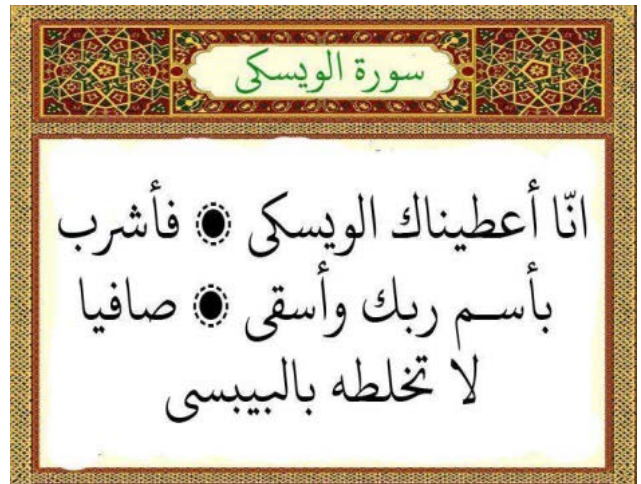 سورة الويسكى
انّا أعطيناك الويسكى ۝ فأشرب
بأسم ربك وأسقى ۝ صافيا
لا تخلطه بالبيبسى